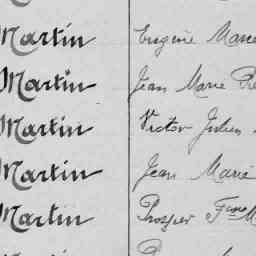 Martin Eugène Marie
Martin Jean Marie
Martin Victor Julien
Martin Jean Marie
Martin Prosper F^que M